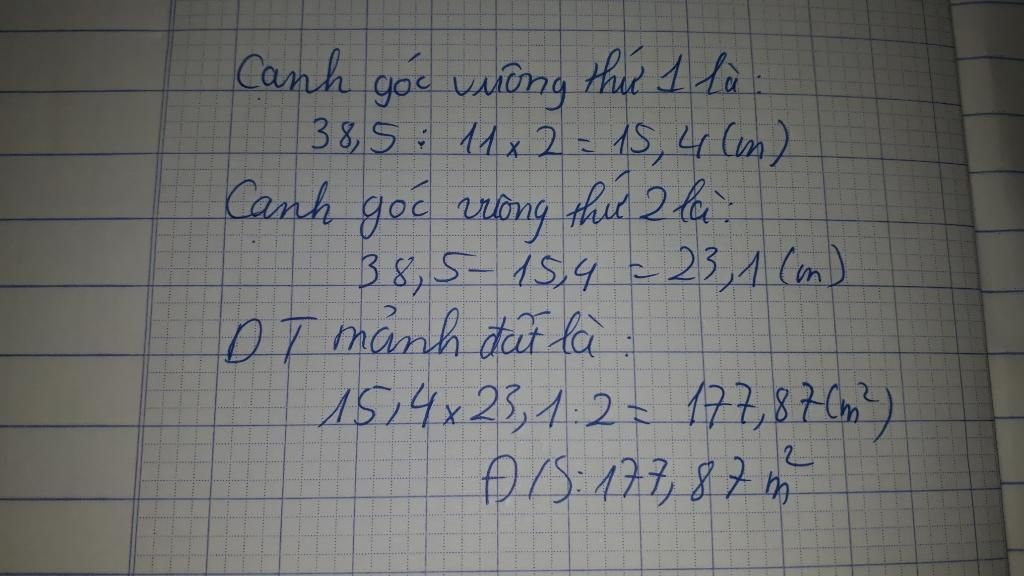 Cạnh góc vuông thứ 1 là:
38,5 : 11 x 2 = 15,4 (m)
Cạnh góc vuông thứ 2 là:
38,5 - 15,4 = 23,1 (m)
DT mảnh đất là:
15,4 x 23,1 : 2 = 177,87 (m²)
Đ/S: 177,87 m²